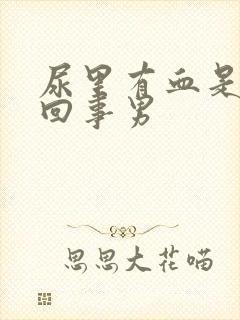 尿里有血是
回事男
思思大花喵